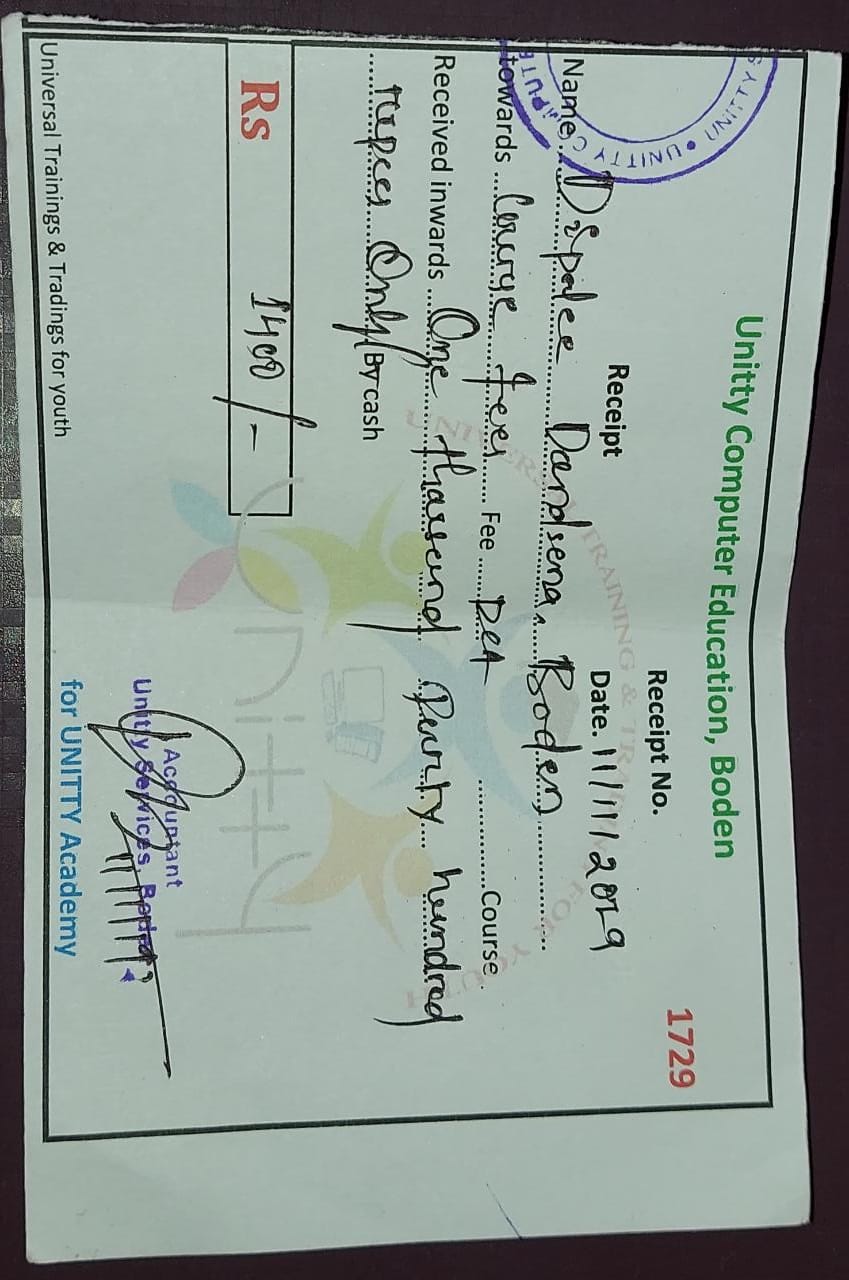 Unitty Computer Education, Boden
Receipt No. 1729
Receipt Date. 11/11/2019
Name. Dipalee Dandsena, Boden
towards Course fees Fee DCA Course
Received inwards One thousand Four hundred
rupees Only By cash
Rs 1400/-
Accountant
Unitty Services, Boden
for UNITTY Academy
Universal Trainings & Tradings for youth
UNITTY COMPUTE
UNIVERSAL TRAINING & TRADING FOR YOUTH
Unitty